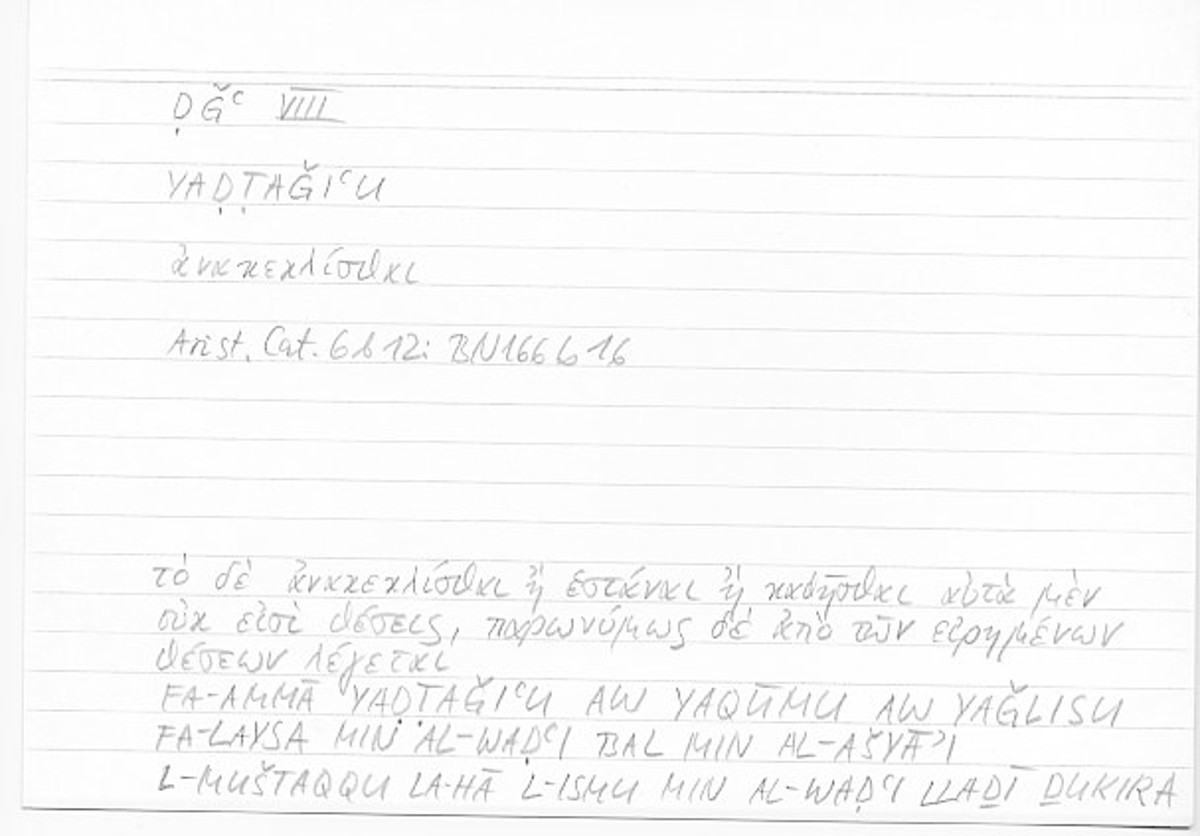 ḌĞʿ VIII
YAḌṬAĞIʿU
ἀνακεκλίσθαι
Arist. Cat. 6b12: BN166b16
τὸ δὲ ἀνακεκλίσθαι ἢ ἑστάναι ἢ καθῆσθαι αὐτὰ μὲν
οὐκ εἰσὶ θέσεις, παρωνύμως δὲ ἀπὸ τῶν εἰρημένων
θέσεων λέγεται
FA-AMMĀ YAḌṬAĞIʿU AW YAQŪMU AW YAĞLISU
FA-LAYSA MIN AL-WAḌʿI BAL MIN AL-AŠYĀʾI
L-MUŠTAQQU LA-HĀ L-ISMU MIN AL-WAḌʿI LLAḎĪ ḎUKIRA